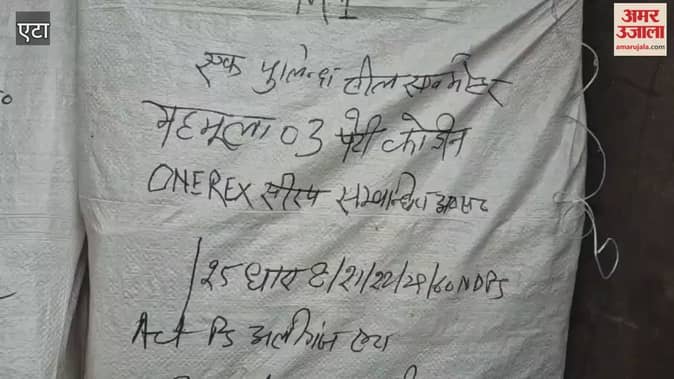 एटा
अमर उजाला
amarujala.com
M 1
एक पुलिन्दा सील सर्व मोहर
महमूला 03 पेटी कोडीन
ONEREX सीरप सम्बन्धित
/25 धारा 8/21/22/29/60 NDPS
Act PS अलीगंज एटा